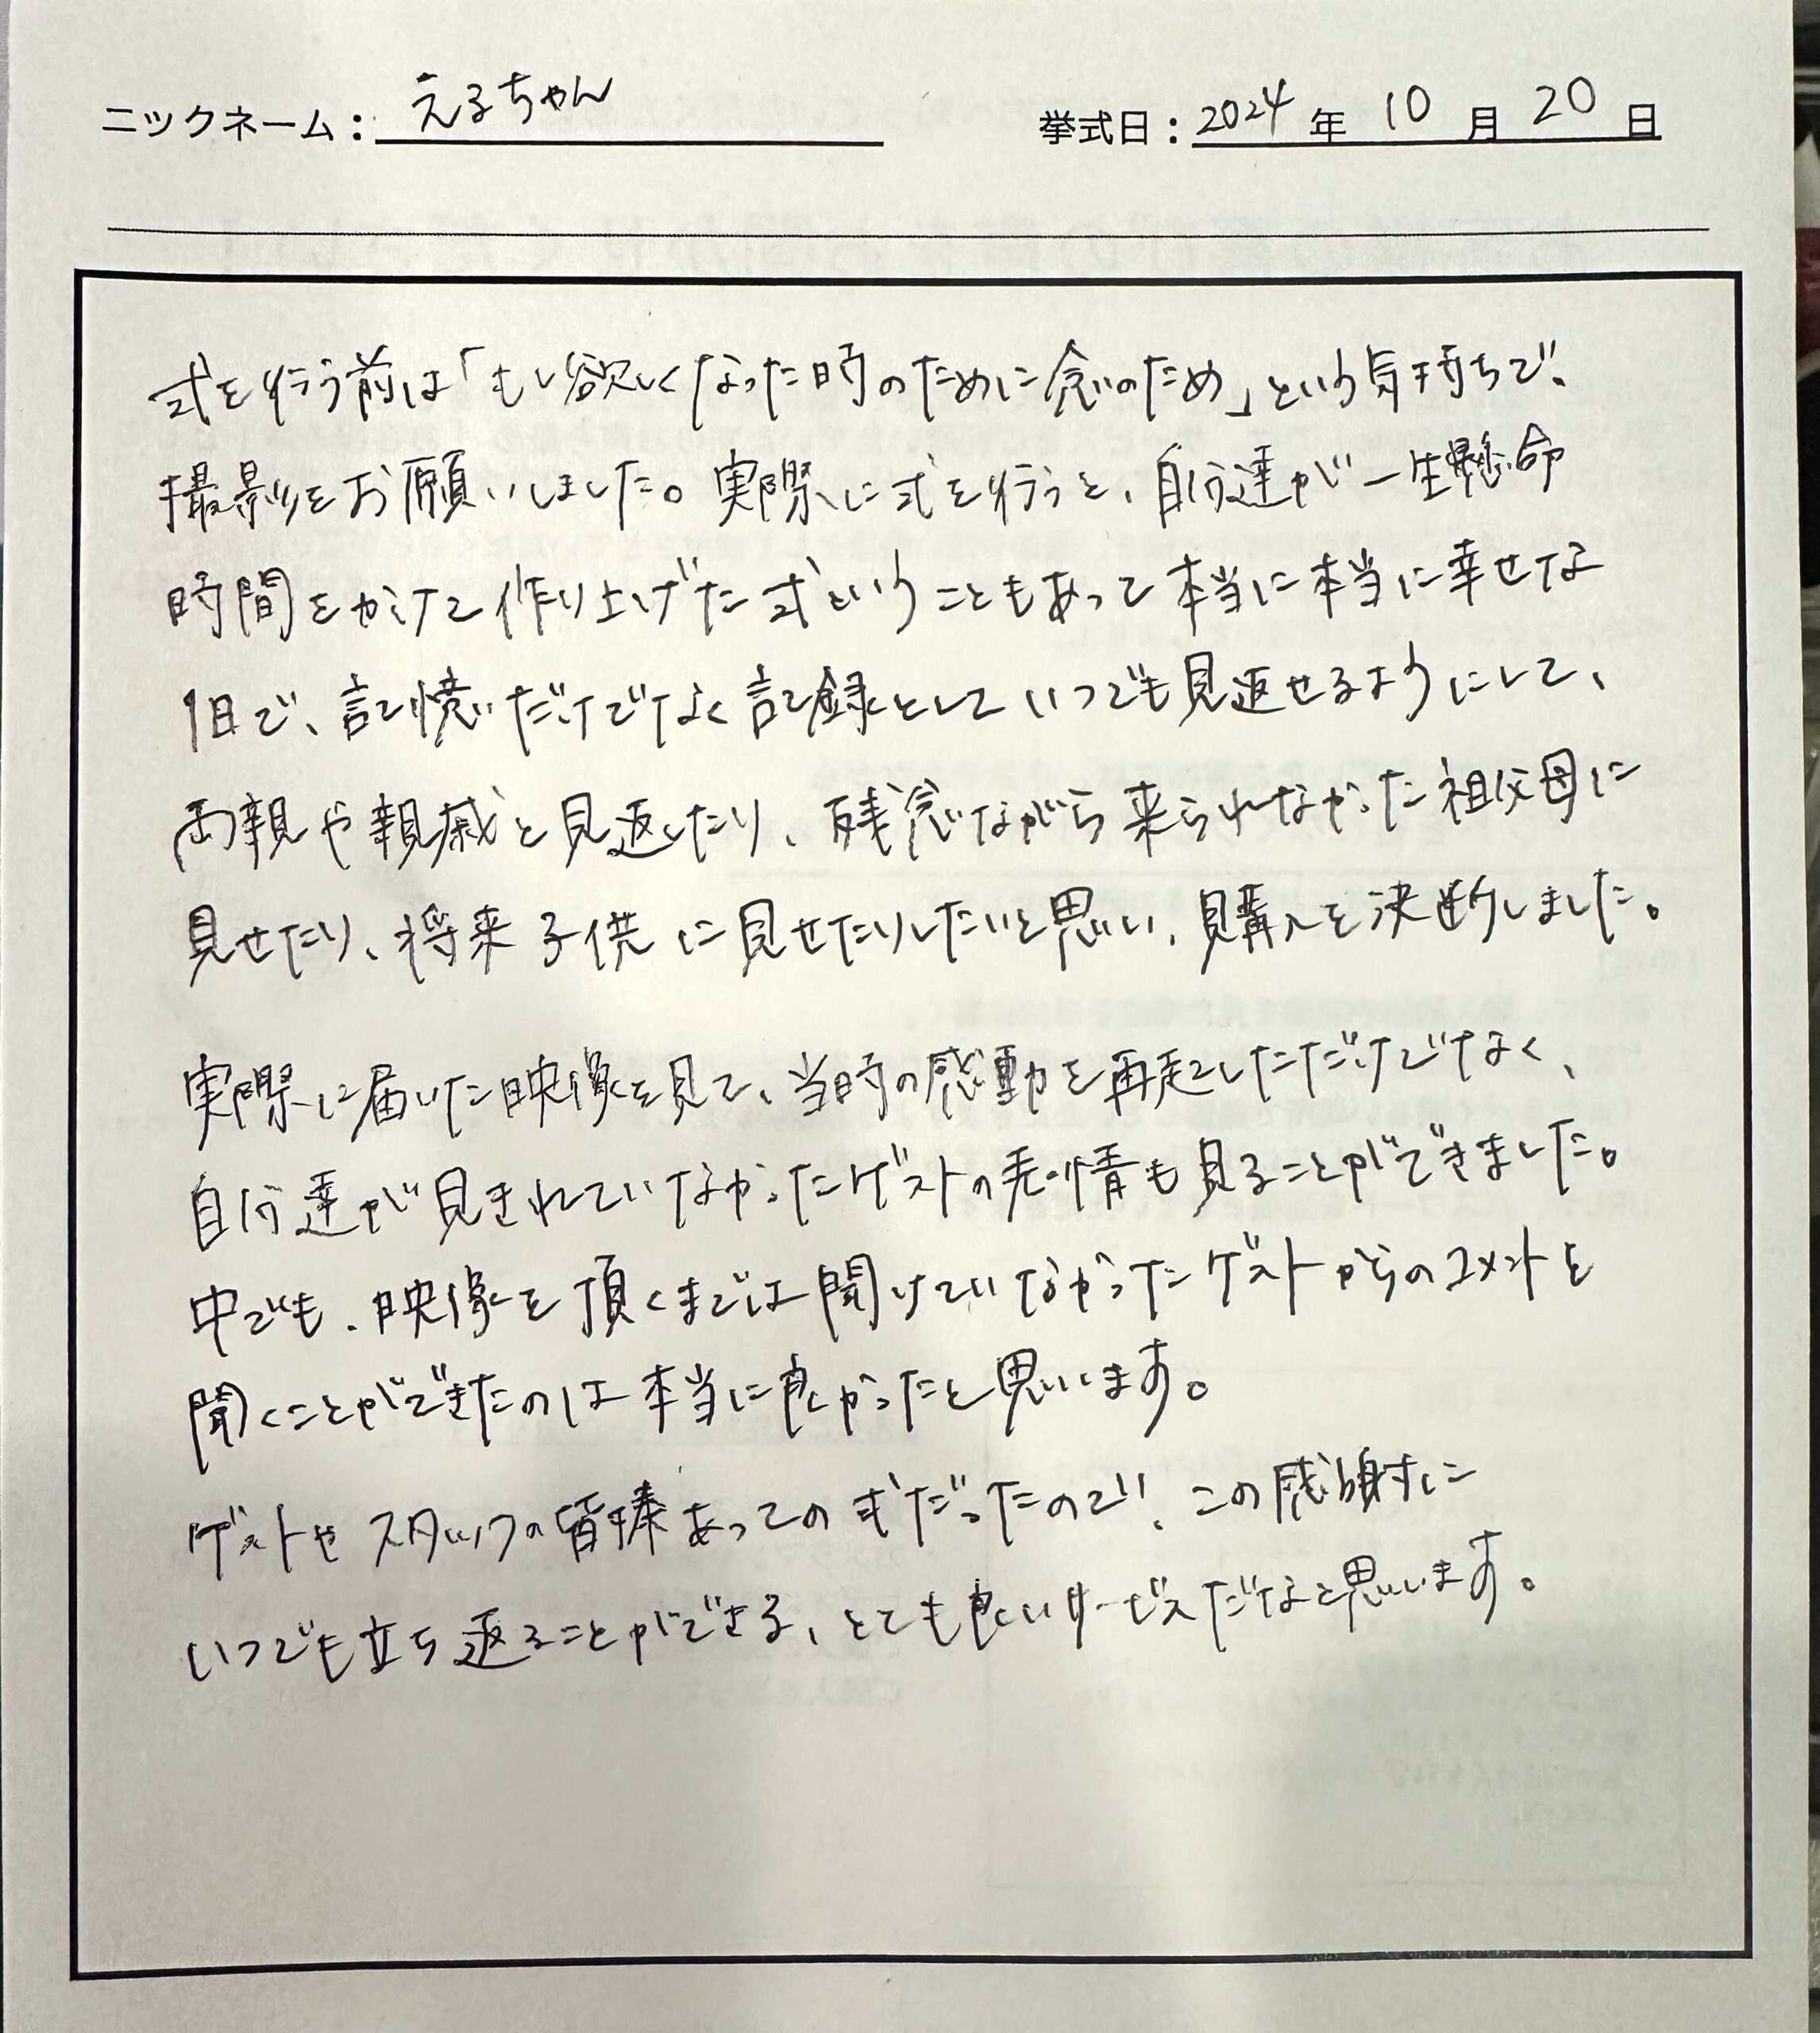 ニックネーム：えるちゃん
挙式日：2024年10月20日
式を行う前は「もし欲しくなった時のために念のため」という気持ちで、
撮影をお願いしました。実際に式を行うと、自分達が一生懸命
時間をかけて作り上げた式ということもあって本当に本当に幸せな
1日で、記憶だけでなく記録としていつでも見返せるようにして、
両親や親戚と見返したり、残念ながら来られなかった祖父母に
見せたり、将来子供に見せたりしたいと思い、購入を決断しました。
実際に届いた映像を見て、当時の感動を再起しただけでなく、
自分達が見きれていなかったゲストの表情も見ることができました。
中でも、映像を頂くまでは聞けていなかったゲストからのコメントを
聞くことができたのは本当に良かったと思います。
ゲストやスタッフの皆様あっての式だったので、この感謝に
いつでも立ち返ることができる、とても良いサービスだなと思います。